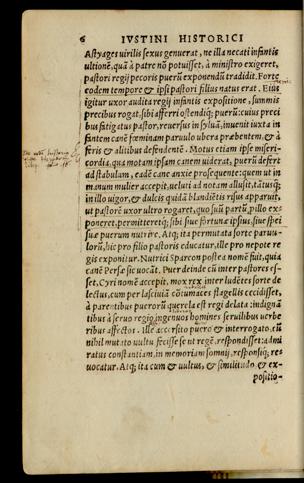 6 IVSTINI HISTORICI
Astyages uirilis sexus genuerat, ne illa necati infantis
ultionē, quā à patre nō potuisset, à ministro exigeret,
pastori regij pecoris puerū exponendū tradidit. Forte
eodem tempore & ipsi pastori filius natus erat. Eius
igitur uxor audita regij infantis expositione, summis
precibus rogat, sibi afferri ostendiq; puerū: cuius preci
bus fatigatus pastor, reuersus in syluā, inuenit iuxta in
fantem canē fœminam paruulo ubera præbentem, & à
feris & alitibus defendentē. Motus etiam ipse miseri-
cordia, qua motam ipsam canem uiderat, puerū defert
ad stabulam, eadē cane anxie prosequente: quem ut in
manum mulier accepit, ueluti ad notam allusit, tātusq;
in illo uigor, & dulcis quidā blandiētis risus apparuit,
ut pastorē uxor ultro rogaret, quo suū partū pro illo ex
poneret, permitteretq; sibi siue fortunæ ipsius, siue spei
suæ puerum nutrire. Atq; ita permutata sorte paruu-
lorū, hic pro filio pastoris educatur, ille pro nepote re
gis exponitur. Nutrici Sparcon postea nomē fuit, quia
canē Persæ sic uocāt. Puer deinde cū inter pastores es-
set, Cyri nomē accepit. mox rex inter ludētes sorte de
lectus, cum per lasciuiā cōtumaces flagellis cecidisset,
à parentibus puerorū querela est regi delata: indignā
tibus à seruo regio ingenuos homines seruilibus uerbe
ribus affectos. ille accersito puero & interrogato, cū
nihil mutato uultu fecisse se ut regē, respondisset: admi
ratus constantiam, in memoriam somnij, responsiq; re-
uocatur. Atq; ita cum & uultus, & similitudo & ex-
positio-